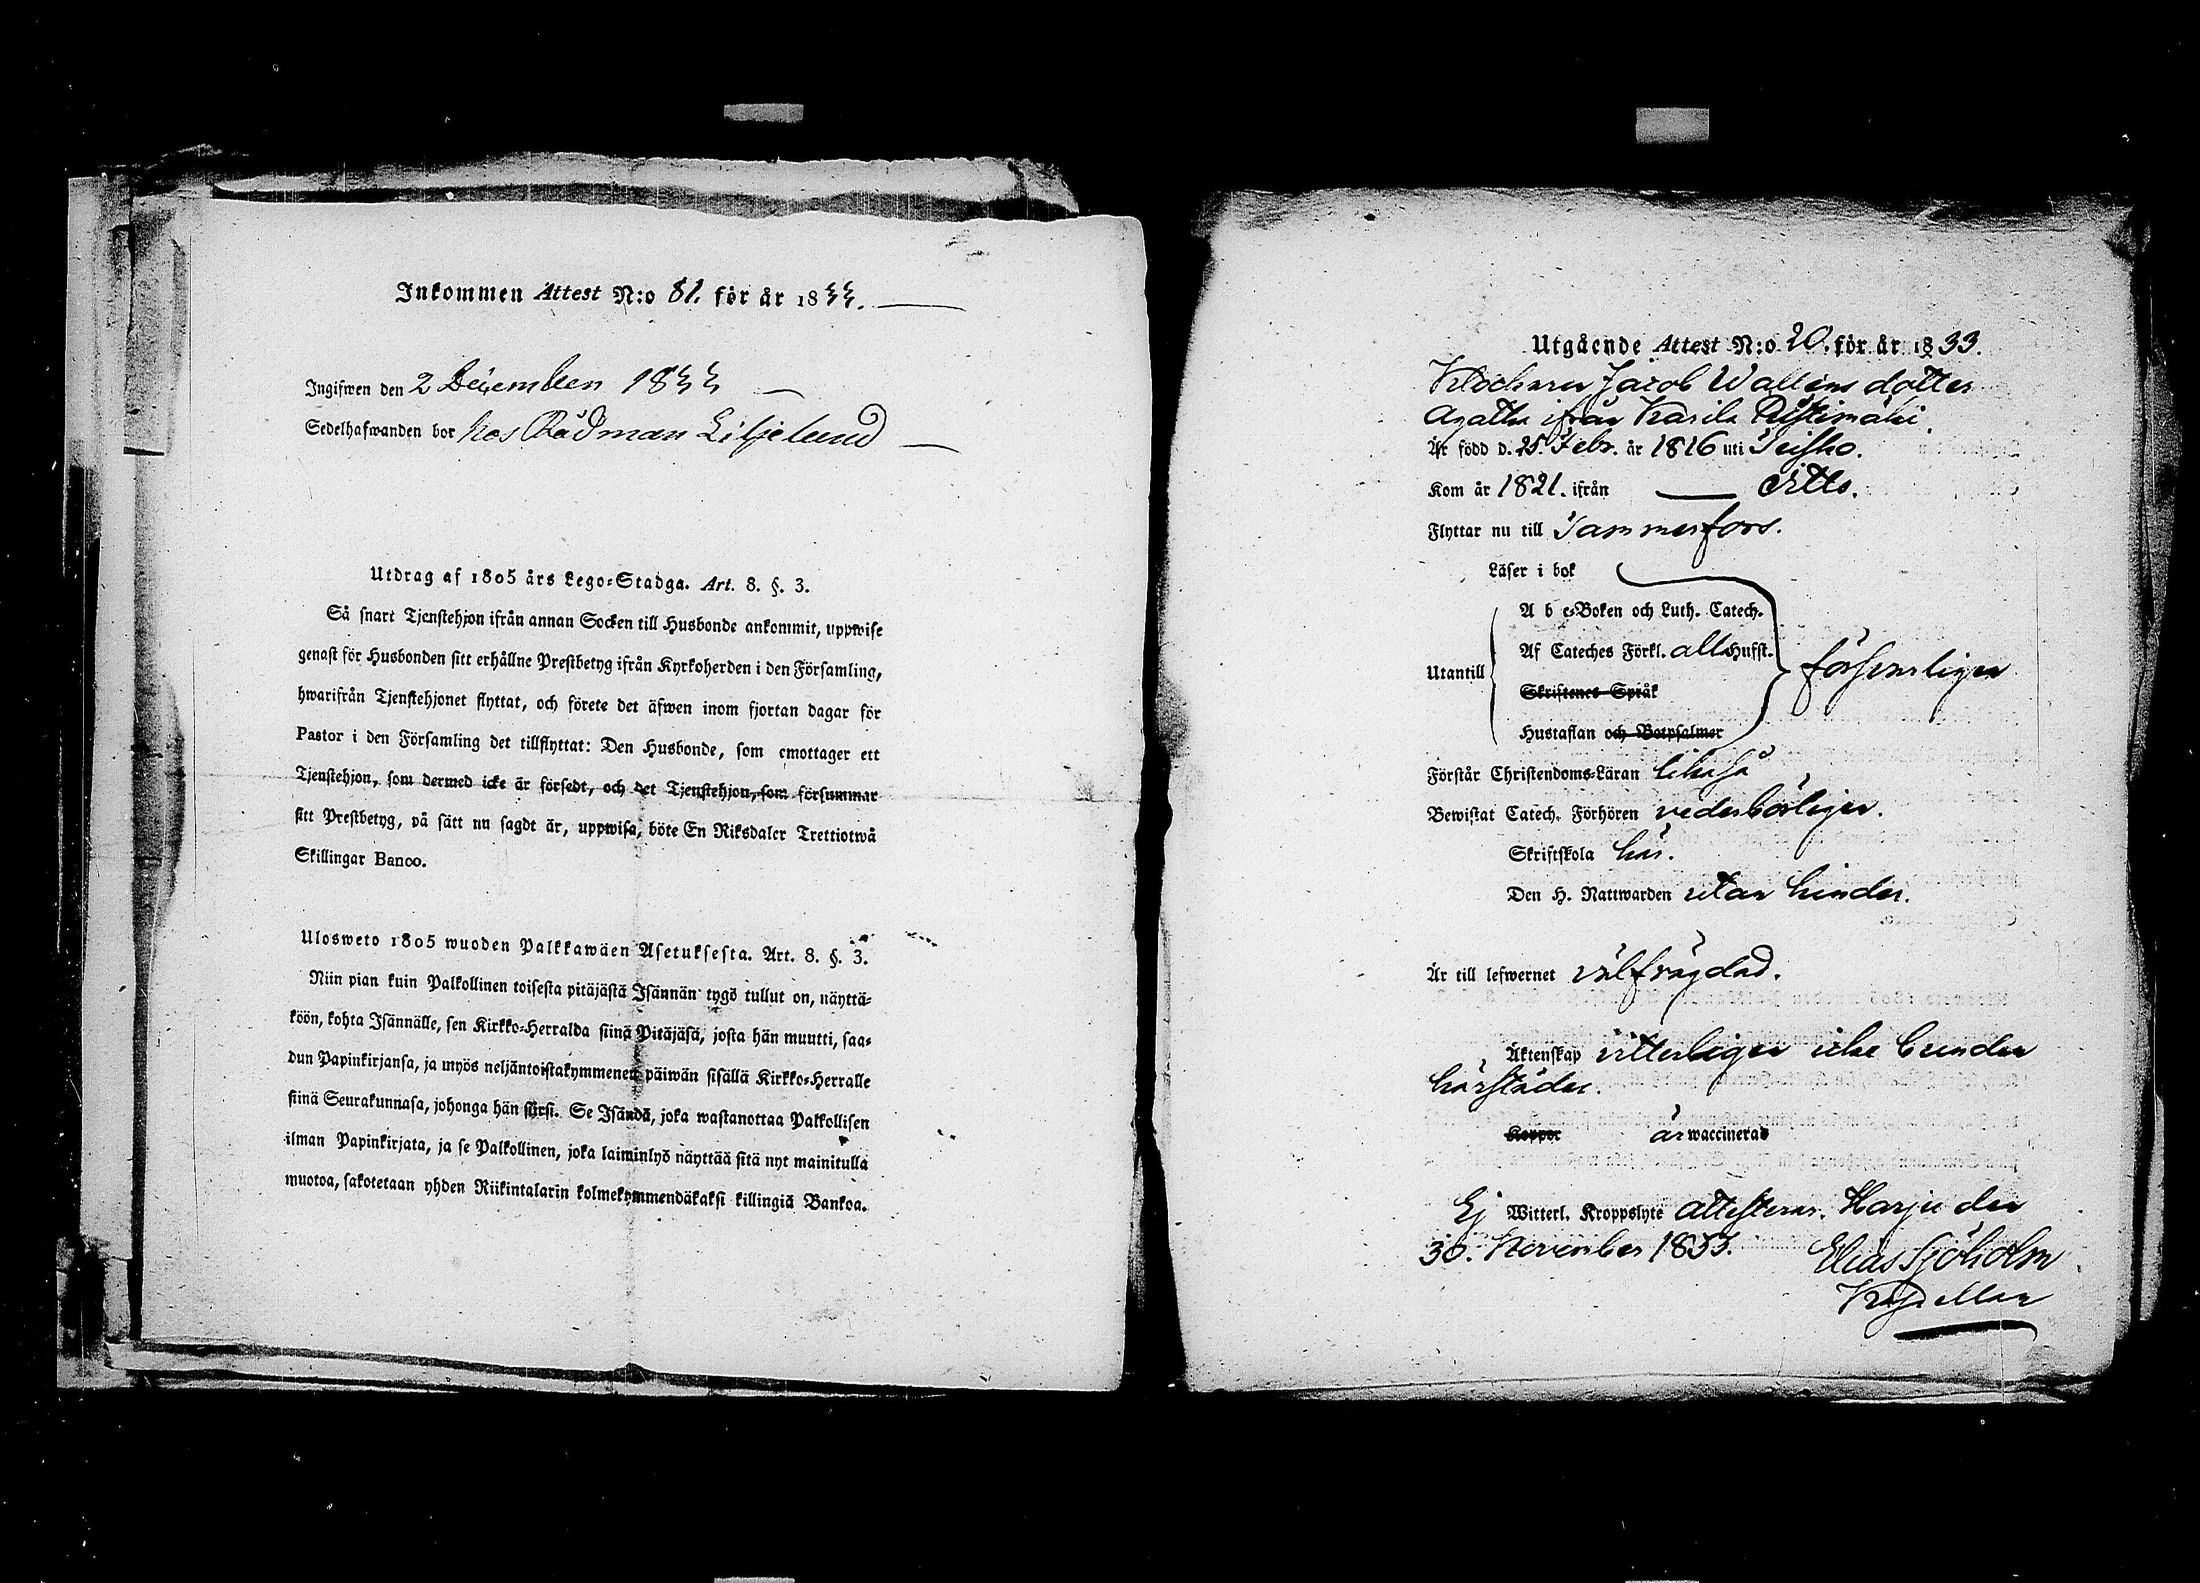 Inkommen Attest N:o 81. för år 1833.
Ingifwen den 2 December 1833
Sedelhafwanden bor hos Rådman Liljelund
Utdrag af 1805 års Lego-Stadga. Art. 8. §. 3.
Så snart Tjenstehjon ifrån annan Socken till Husbonde ankommit, uppwise
genast för Husbonden sitt erhållne Prestbetyg ifrån Kyrkoherden i den Församling,
hwarifrån Tjenstehjonet flyttat, och förete det äfwen inom fjortan dagar för
Pastor i den Församling det tillflyttat: Den Husbonde, som emottager ett
Tjenstehjon, som dermed icke är försedt, och det Tjenstehjon, som försummar
sitt Prestbetyg, på sätt nu sagdt är, uppwisa, böte En Riksdaler Trettiotwå
Skillingar Banco.
Ulosweto 1805 wuoden Palkkawäen Asetuksesta. Art. 8. §. 3.
Niin pian kuin Palkollinen toisesta pitäjästä Isännän tygö tullut on, näyttä-
köön, kohta Isännälle, sen Kirkko-Herralda siinä Pitäjäsä, josta hän muutti, saa-
dun Papinkirjansa, ja myös neljäntoistakymmenen päiwän sisällä Kirkko-Herralle
siinä Seurakunnasa, johonga hän siirsi. Se Isändä, joka wastanottaa Palkollisen
ilman Papinkirjata, ja se Palkollinen, joka laiminlyö näyttää sitä nyt mainitulla
muotoa, sakotetaan yhden Riikintalarin kolmekymmendäkaksi killingiä Bankoa.
Utgående Attest N:o 20. för år 1833.
Klockaren Jacob Wallens dotter
Agatha ifrån Karila Ristimäki.
Är född d. 25. Febr. år 1816 uti Teisko.
Kom år 1821. ifrån —— Ditto.
Flyttar nu till Tammerfors.
Läser i bok
A b c-Boken och Luth. Catech.
Af Cateches Förkl. allt Hufst.
Utantill försvarligen
Skriftenes Språk
Hustaflan och Botpsalmer
Förstår Christendoms-Läran likaså
Bewistat Catech. Förhören vederbörligen.
Skriftskola här.
Den H. Nattwarden utan hinder.
Är till lefwernet välfrägdad.
Äktenskap vitterligen icke bunden
härstädes.
Koppor är waccinerad
Ej Witterl. Kroppslyte attesterar. Harju den
30. November 1833. Elias Sjöholm
Kapellan